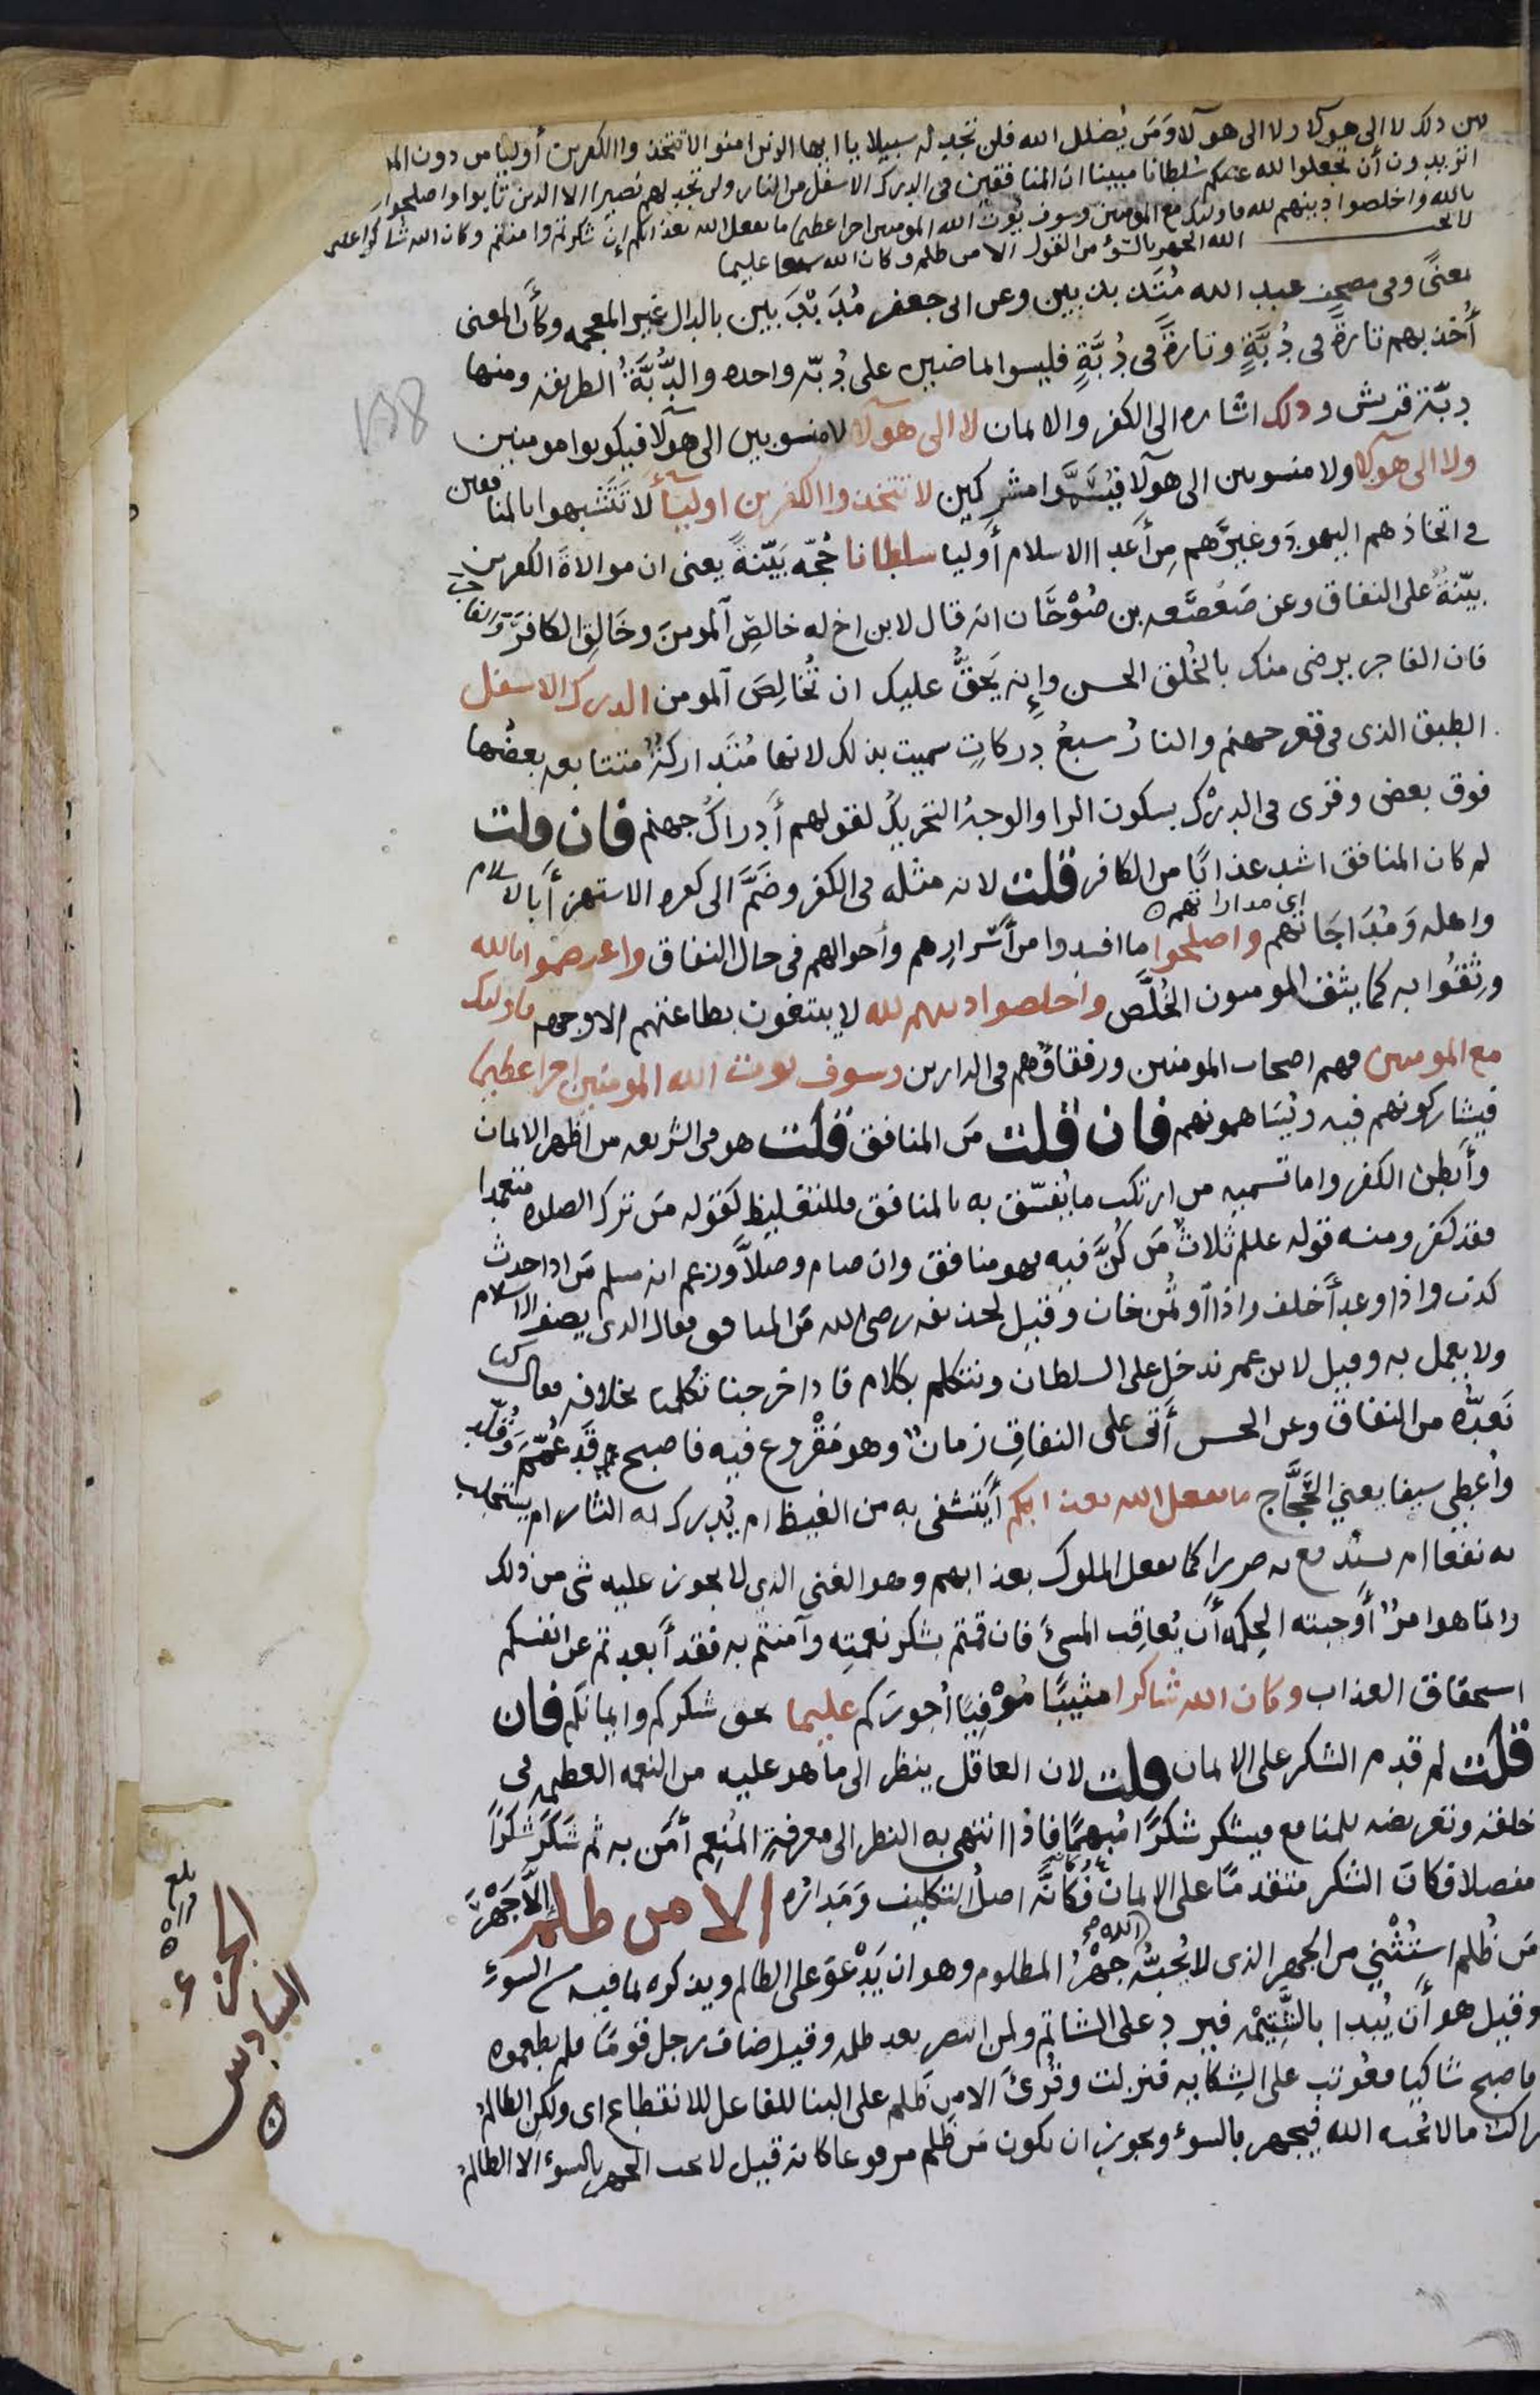 بين ذلك لا الى هولا ولا الى هولا ومَن يُضلل الله فلن تجد له سبيلا يا ايها الذين امنوا لا تتخذوا الكفرين أوليا من دون الم
اتريدون أن تجعلوا لله عليكم سُلطانا مبينا ان المنافقين فى الدرك الاسفل من النار ولن تجد لهم نصيرا الا الذين تابوا واصلحوا
بالله واخلصوا دينهم لله فاوليك مع المومنين وسوف يُوت الله المومنين اجرا عظيما ما يفعل الله بعذابكم إن شكرتم وامنتم وكان الله شاكرا عليما
لا يحب الله الجهر بالسُّوءِ من القول الا من ظلم وكان الله سميعا عليما
معنًى وفى مصحف عبد الله مُتَذبذبين وعن ابى جعفر مُدَبْدَبين بالدال غير المعجمه وكأَن المعنى
أُخذ بهم تارةً فى دُبَّةٍ وتارةً فى دُبَّةٍ فليسوا ماضيين على دُبّه واحده والدُّبَّةُ الطريقه ومنها
دبّة قريش وذلك اشاره الى الكفر والايمان لا الى هولا لا منسوبين الى هولا فيكونوا مومنين
ولا الى هولا ولا منسوبين الى هولا فيُسَمَّوا مشركين لا تتخذوا الكفرين اولياءَ لا تَتَشبهوا بالمنافقين
فى اتخاذهم اليهودَ وغيرَهم مِن أعدا الاسلام أوليا سلطانا حُجّه بَيّنةً يعنى ان موالاةَ الكفرين
بيّنةٌ على النفاق وعن صَعْصَعه بن صُوْحَان انه قال لابن اخ له خالِصِ المومنَ وخَالِقِ الكافرَ والفاجر
فان الفاجر يرضى منك بالخُلق الحسن وإنه يَحقُّ عليك ان تُخالِصَ المومن الدرك الاسفل
الطبق الذى فى قعر جهنم والنارُ سبعُ دركاتٍ سميت بذلك لانها مُتَداركةٌ متتابعه بعضُها
فوق بعض وقرى فى الدرْك بسكون الرا والوجهُ التحريكُ لقولهم أدراكُ جهنم فان قلت
لم كان المنافق اشد عذابًا من الكافر قلت لانه مثله فى الكفر وضَمَّ الى كفره الاستهزأَ بالاسلام
اى مداراتهم
واهله ومُدَاجَاتهم واصلحوا ما افسدوا من أسرارِهم وأحوالهم فى حال النفاق واعتصموا بالله
ووَثقُوا به كما يثق المومنون الخُلَّص واخلصوا دينهم لله لا يبتغون بطاعتهم الا وجهه فاوليك
مع المومنين فهم اصحاب المومنين ورفقاؤهم فى الدارين وسوف يوت الله المومنين اجرا عظيما
فيشاركونهم فيه ويُساهمونهم فان قلت مَن المنافق قلت هو فى الشريعه من اظهر الايمان
وأبطن الكفر واما تسميه من ارتكب ما يُفسّق به بالمنافق فللتغليظ كقوله مَن ترك الصلوه متعمدا
فقد كفر ومنه قوله عللم ثلاثٌ مَن كُنَّ فيه فهو منافق وان صام وصلَّا وزعم انه مسلم مَن اذا حدث
كذب واذا وعد أخلف واذا اوتُمن خان وقيل لحذيفه رضى الله مَن المنافق فقال الذى يصف الاسلام
ولا يعمل به وقيل لابن عمر ندخل على السلطان ونتكلم بكلام فاذا خرجنا تكلمنا بخلافه فقال كنا
نَعدُّه من النفاق وعن الحسن أتى على النفاقِ زمانٌ وهو مَقْروع فيه فاصبح قد عُمِّمَ وقُلِّد
وأُعطِى سيفا يعنى الحَجَّاج ما يفعل الله بعذابكم أيَتشفى به من الغيظ ام يُدرك به الثار ام يستجلب
به نفعا ام يستدفع به ضررا كما يفعل الملوك بعذابهم وهو الغنى الذى لا يجوز عليه شى من ذلك
وانما هو امرٌ أوجبته الحكمه أن يُعاقِب المسئَ فان قمتم بشكر نعمتِه وآمنتم به فقد أبعدتم عن انفسكم
استحقاق العذاب وكان الله شاكرا مثيبًا مُوْفِيًا أجورَكم عليما بحق شكركم وايمانكم فان
قلت لم قدم الشكر على الايمان قلت لان العاقل ينظر الى ما هو عليه من النعمه العظيمه فى
خلقه وتعريضه للمنافع فيشكر شكرًا مُبهمًا فاذا انتهى به النظر الى معرفةِ المُنعِم أمَن به ثم شَكَرَ شكرًا
مفصلا فكان الشكر متقدمًا على الايمان فكانَّه اصلُ التكليف ومَداره الا من ظلم إلَّا جَهْرَ
مَن ظُلم استُثْنِى من الجهر الذى لا يُحبُّه الله جهْرُ المظلوم وهو ان يَدْعوَ على الظالم ويذكره بما فيه من السوءِ
وقيل هو أن يُبدا بالشَّتيْمه فيرد على الشاتم ولمن انتصر بعد ظلمه وقيل ضاف رجل قومًا فلم يطعموه
فاصبح شاكيا فعُوتب على الشِكايه فنزلت وقُرئَ الا من ظَلم على البنا للفاعل للانقطاع اى ولكن الظالمُ
راكب ما لا يُحبه الله فيجهر بالسوءِ ويجوز ان يكون مَن ظَلم مرفوعا كانه قيل لا يحب الجهر بالسوء الا الظالمُ
١٥٨
بلغ
الجزء
السادس